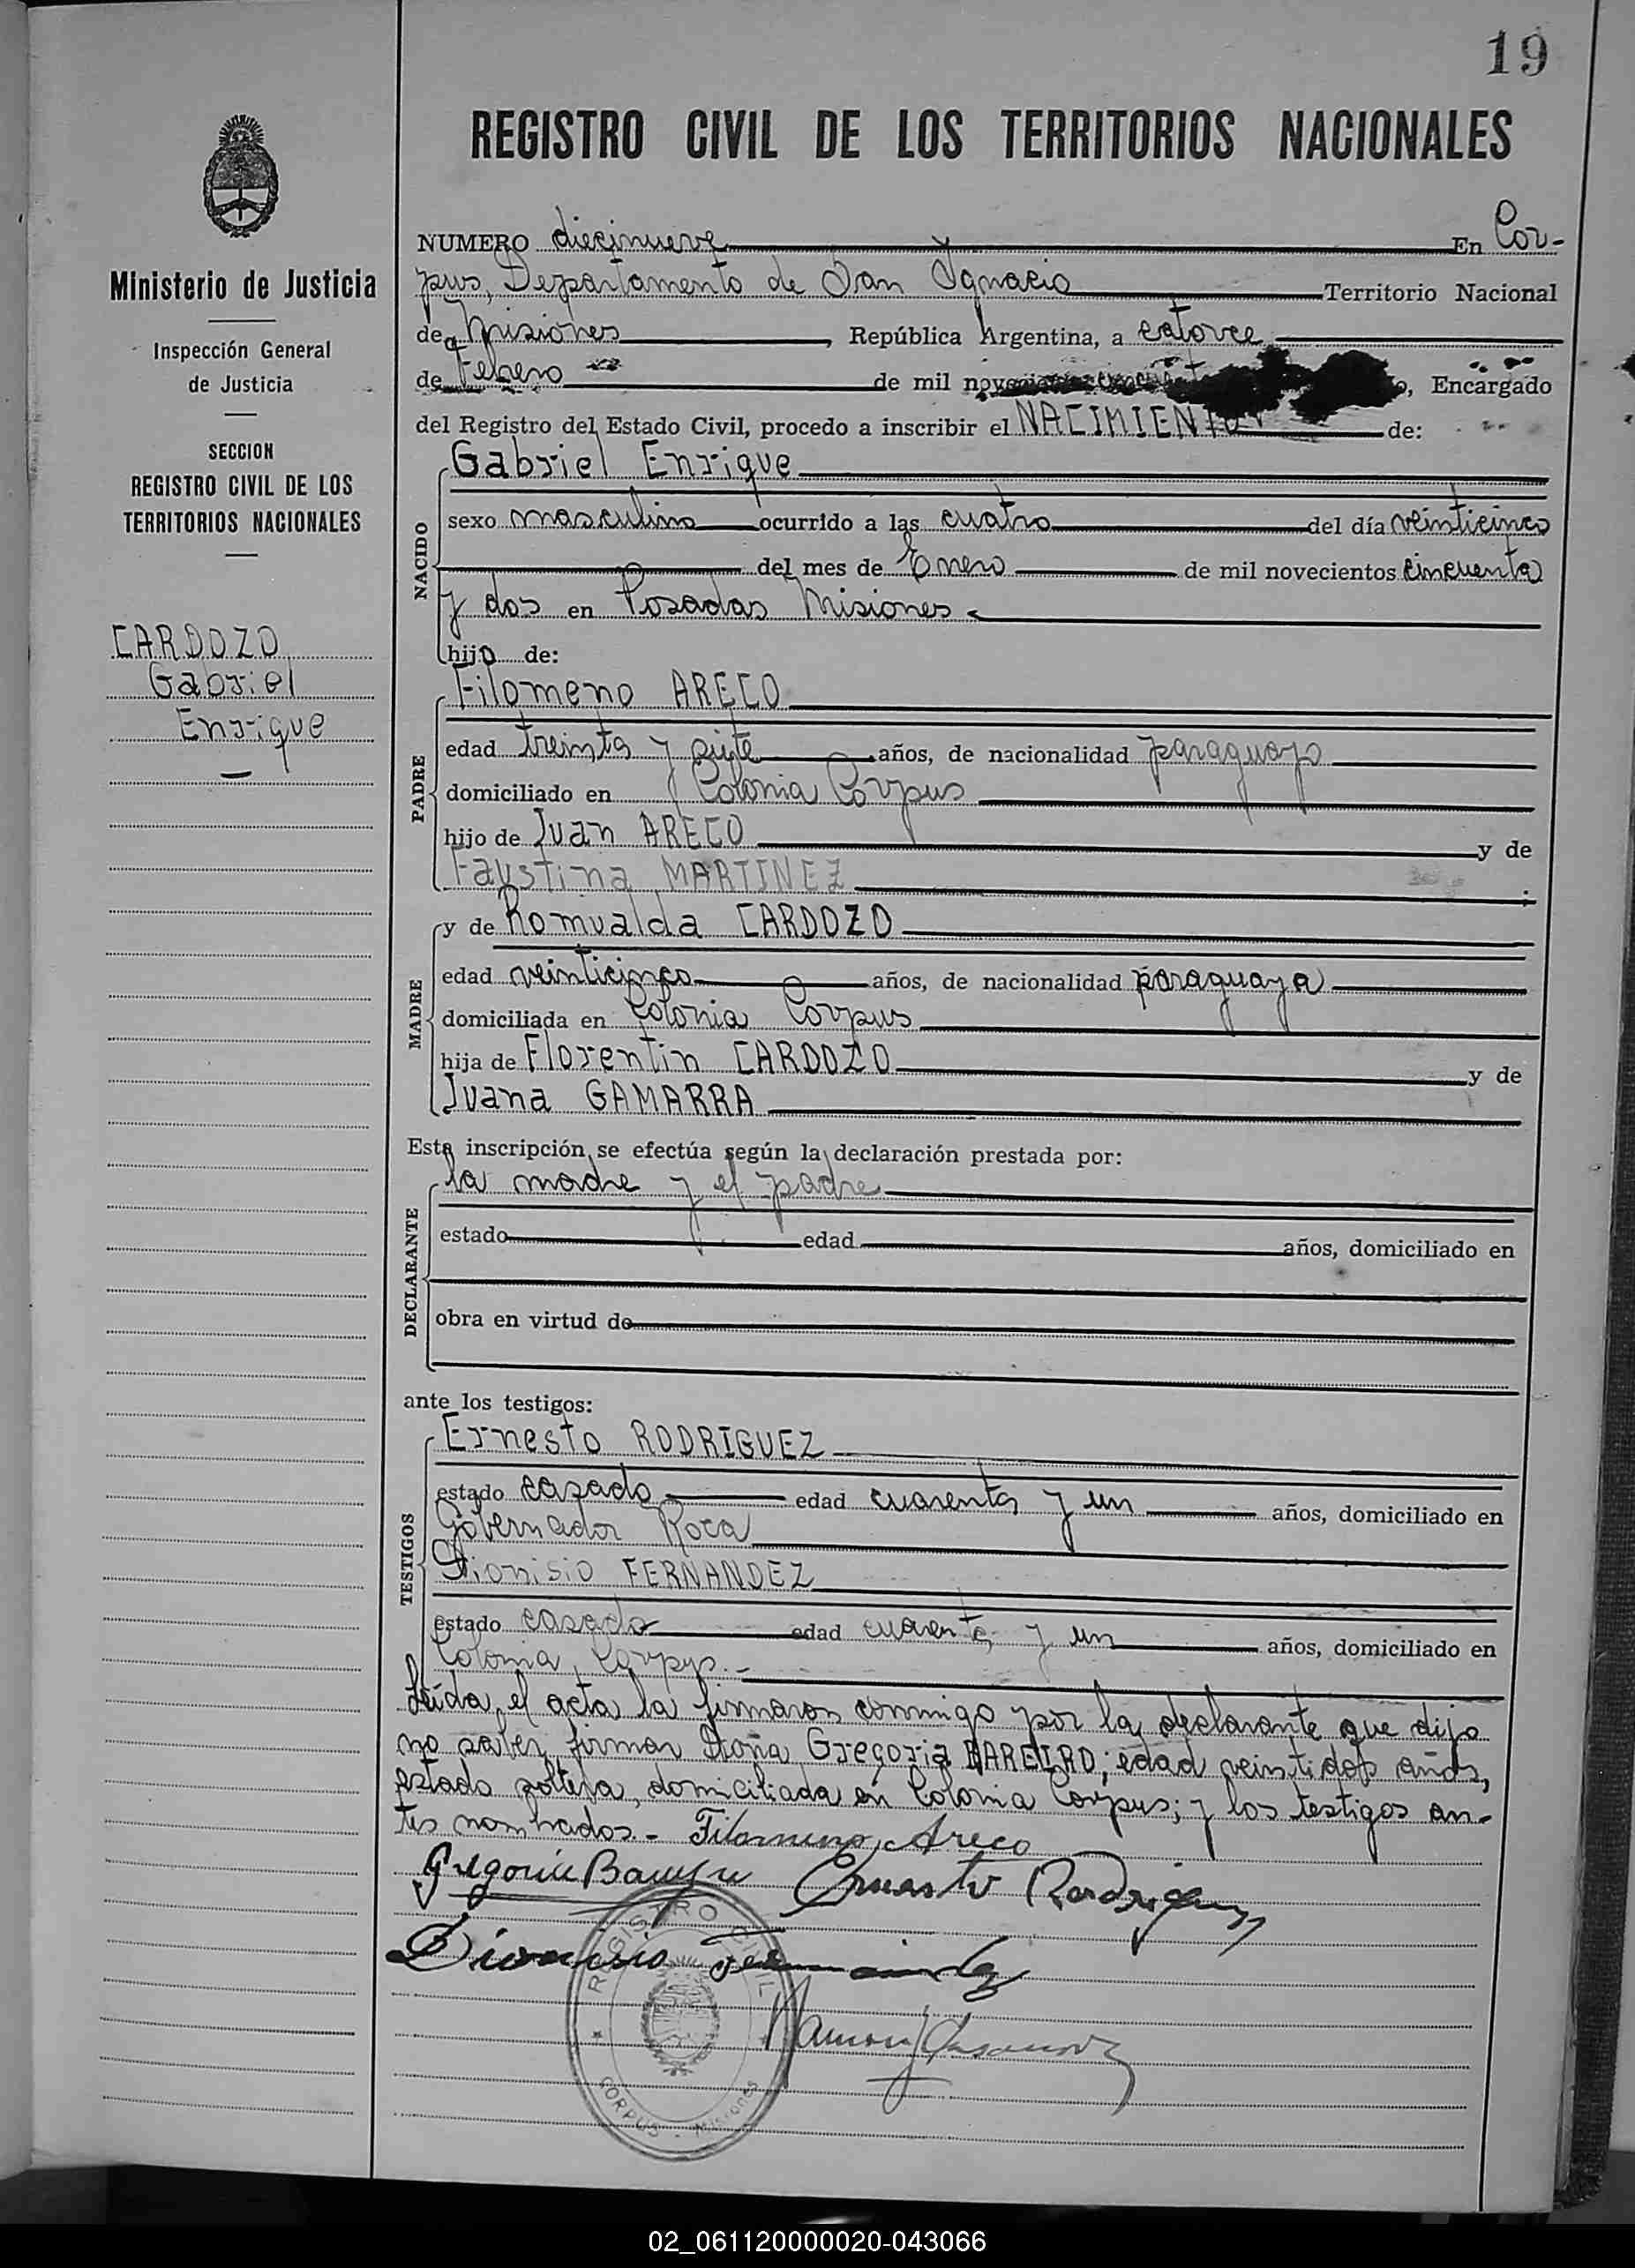 19
REGISTRO CIVIL DE LOS TERRITORIOS NACIONALES
Ministerio de Justicia
Inspección General
de Justicia
SECCION
REGISTRO CIVIL DE LOS
TERRITORIOS NACIONALES
CARDOZO
Gabriel
Enrique
NUMERO diecinueve En Cor-
pus, Departamento de San Ygnacio Territorio Nacional
de Misiones, República Argentina, a catorce
de Febrero de mil novecientos, Encargado
del Registro del Estado Civil, procedo a inscribir el NACIMIENTO de:
NACIDO
Gabriel Enrique
sexo masculino ocurrido a las cuatro del día veinticinco
del mes de Enero de mil novecientos cincuenta
y dos en Posadas Misiones
hijo de:
PADRE
Filomeno ARECO
edad treinta y siete años, de nacionalidad paraguayo
domiciliado en Colonia Corpus
hijo de Juan ARECO y de
Faustina MARTINEZ ;
MADRE
y de Romualda CARDOZO
edad veinticinco años, de nacionalidad paraguaya
domiciliada en Colonia Corpus
hija de Florentin CARDOZO y de
Juana GAMARRA
Esta inscripción se efectúa según la declaración prestada por:
DECLARANTE
la madre y el padre
estado edad años, domiciliado en
obra en virtud de
ante los testigos:
TESTIGOS
Ernesto RODRIGUEZ
estado casado edad cuarenta y un años, domiciliado en
Gobernador Roca
Dionisio FERNANDEZ
estado casado edad cuarenta y un años, domiciliado en
Colonia Corpus.-
Leída el acta la firmaron conmigo por la declarante que dijo
no saber firmar Doña Gregoria BAREIRO; edad veintidos años,
estado soltera, domiciliada en Colonia Corpus; y los testigos an-
tes nombrados.- Filomeno Areco
Gregoria Bareyro Ernesto Rodriguez
Dionisio Fernandez
REGISTRO CIVIL
CORPUS - Misiones
02_061120000020-043066